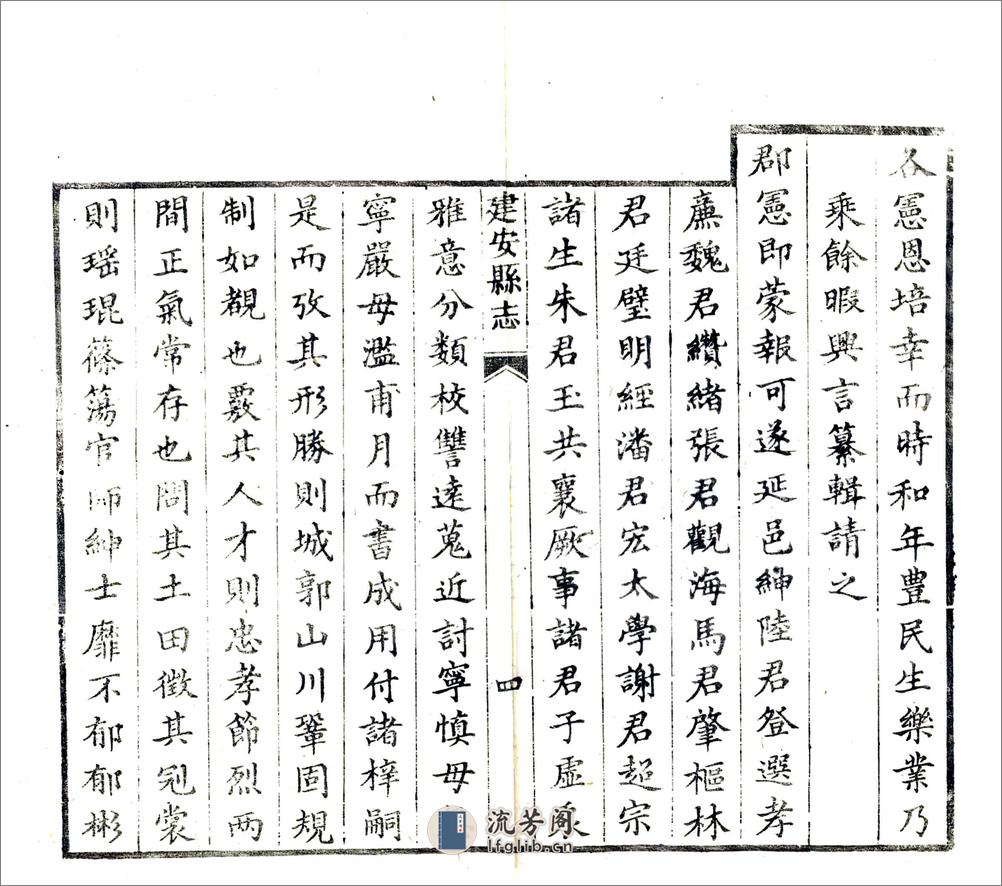 各憲恩培幸而時和年豊民生樂業乃
乘餘暇興言纂輯請之
郡憲即蒙報可遂延邑紳陸君登選孝
廉魏君纘緒張君觀海馬君肇樞林
君廷璧明經潘君宏太學謝君超宗
諸生朱君玉共襄厥事諸君子虛
建安縣志
四
雅意分類校讐遠蒐近討寧慎毋
寧嚴毋濫甫月而書成用付諸梓嗣
是而攷其形勝則城郭山川鞏固規
制如覩也覈其人才則忠孝節烈兩
間正氣常存也閱其土田徵其冠裳
則瑶琨篠簜官師紳士靡不郁郁彬
流芳阁
lfglib.cn